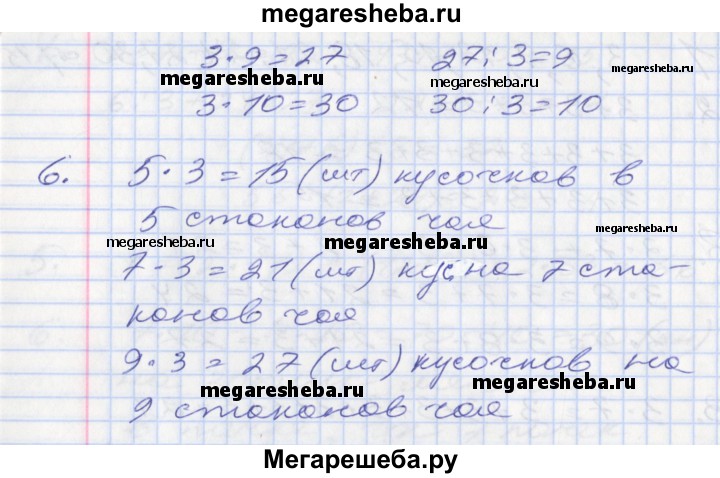 megaresheba.ru
3·9=27 27:3=9
megaresheba.ru megaresheba.ru
3·10=30 30:3=10
6. 5·3=15 (шт) кусочков в
5 стаканов чая
megaresheba.ru megaresheba.ru megaresheba.ru
7·3=21 (шт) кус. на 7 ста-
канов чая
9·3=27 (шт) кусочков на
megaresheba.ru megaresheba.ru
9 стаканов чая
Мегарешеба.ру